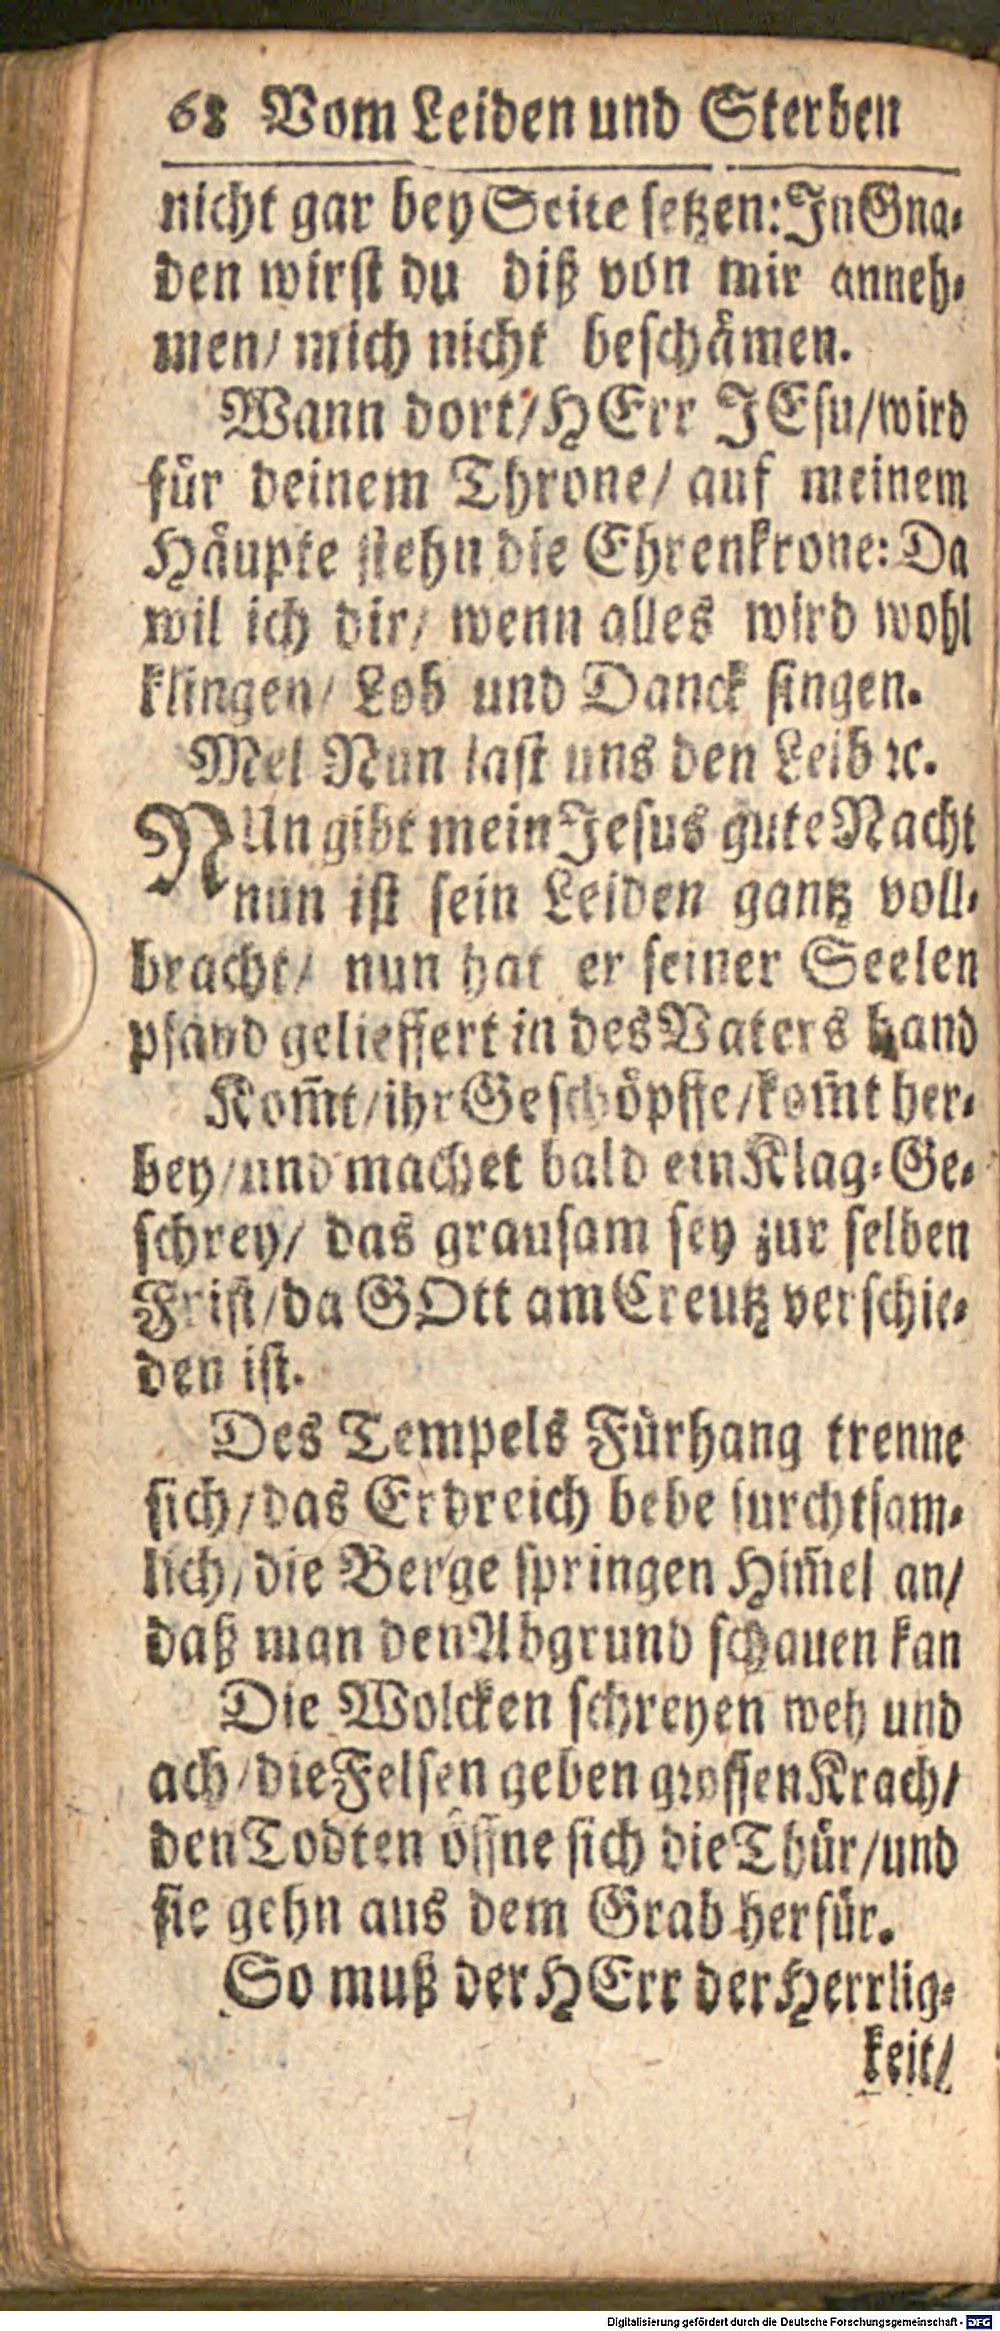 68 Vom Leiden und Sterben
nicht gar bey Seite setzen: In Gna⸗
den wirst du diß von mir anneh⸗
men/ mich nicht beschämen.
Wann dort/ HErr JEsu/ wird
für deinem Throne/ auf meinem
Häupte stehn die Ehrenkrone: Da
wil ich dir/ wenn alles wird wohl
klingen/ Lob und Danck singen.
Mel Nun last uns den Leib ꝛc.
NUn gibt mein Jesus gute Nacht
nun ist sein Leiden gantz voll⸗
bracht/ nun hat er seiner Seelen
pfand gelieffert in des Vaters hand
Kom̄t/ ihr Geschöpffe/ kom̄t her⸗
bey/ und machet bald ein Klag⸗Ge⸗
schrey/ das grausam sey zur selben
Frist/ da GOtt am Creutz verschie⸗
den ist.
Des Tempels Fürhang trenne
sich/ das Erdreich bebe furchtsam⸗
lich/ die Berge springen Him̄el an/
daß man den Abgrund schauen kan
Die Wolcken schreyen weh und
ach/ die Felsen geben grossen Krach/
den Todten öffne sich die Thür/ und
sie gehn aus dem Grab herfür.
So muß der HErr der Herrlig⸗
keit/
Digitalisierung gefördert durch die Deutsche Forschungsgemeinschaft - DFG